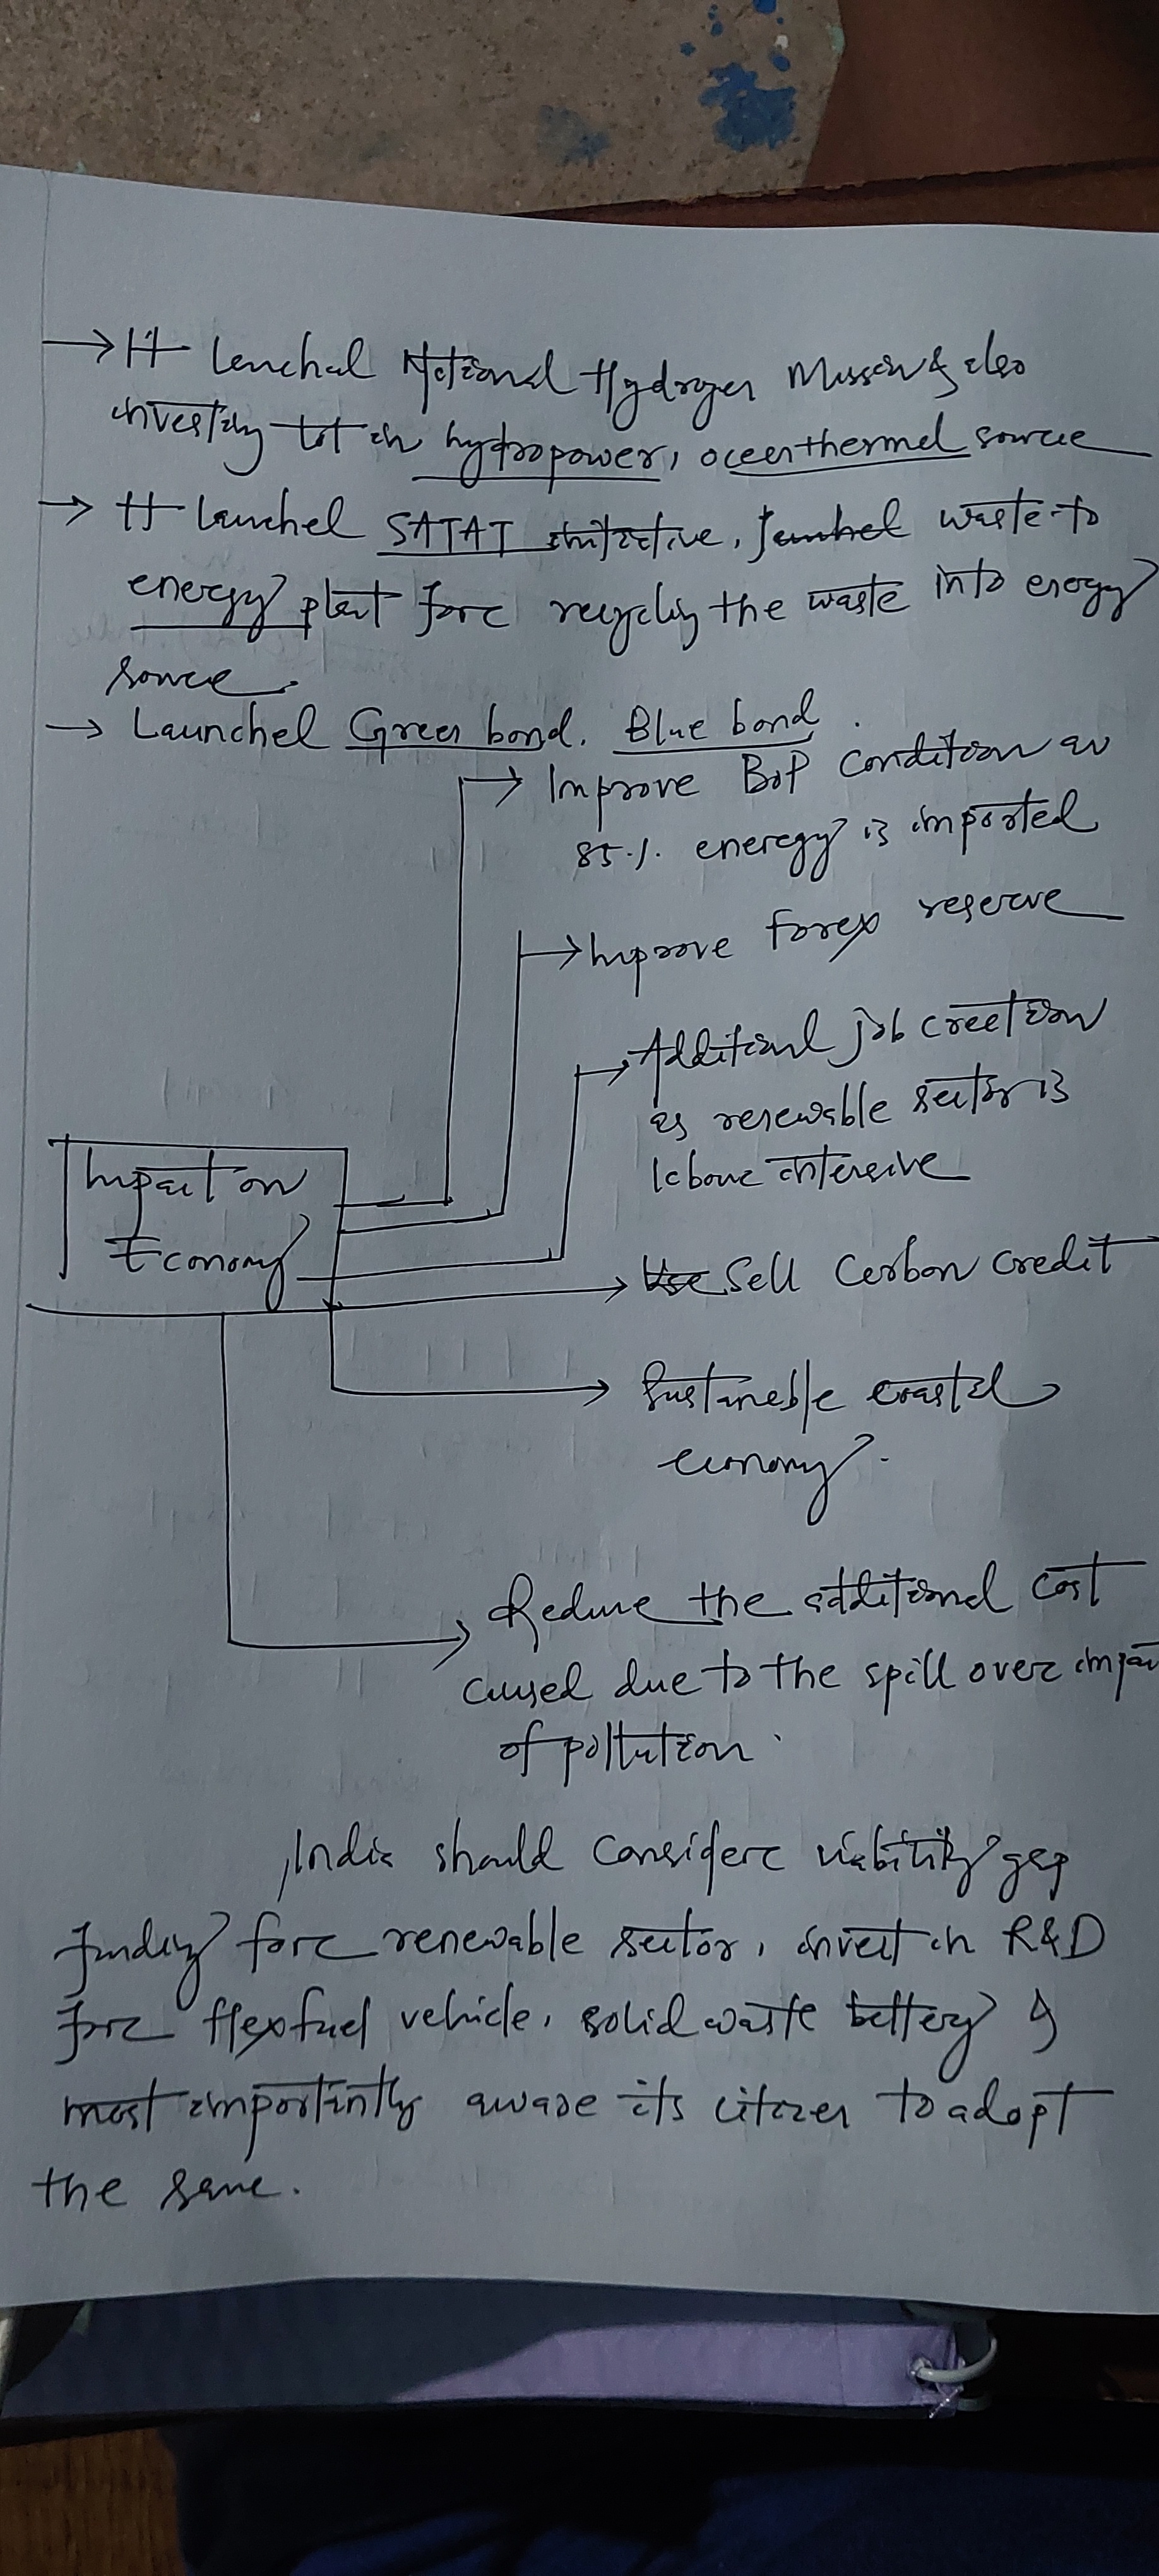 → It lanchal National Hydrogen Mission & also
investing tot in hydropower, oceanthermal source
→ It launchel SATAT initiative, waste to
energy plant forc recycling the waste into enegy
source.
→ Launchel Green bond, Blue bond.
→ Improve BoP condition as
85% eneregy is imported
→ Improve forex reserve
→ Additional job creation
as renewable sector is
labour intensive
Impact on
Economy
→ Sell Carbon credit
→ Sustanable coastal
economy.
→ Reduce the additional cost
caused due to the spill over impa
of pollution.
India should considere viability gap
funding forc renewable sector, invest in R&D
forc flexfuel vehicle, solid waste battery &
most importantly aware its citizen to adopt
the same.